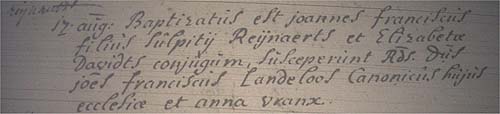 Reijnaerts
17 aug: Baptizatus est joannes franciscus
filius Sulpitij Reijnaerts et Elizabetæ
Davidts conjugum, susceperunt Rds. Dus
joes franciscus Landeloos Canonicus hujus
ecclesiæ et anna vranx.